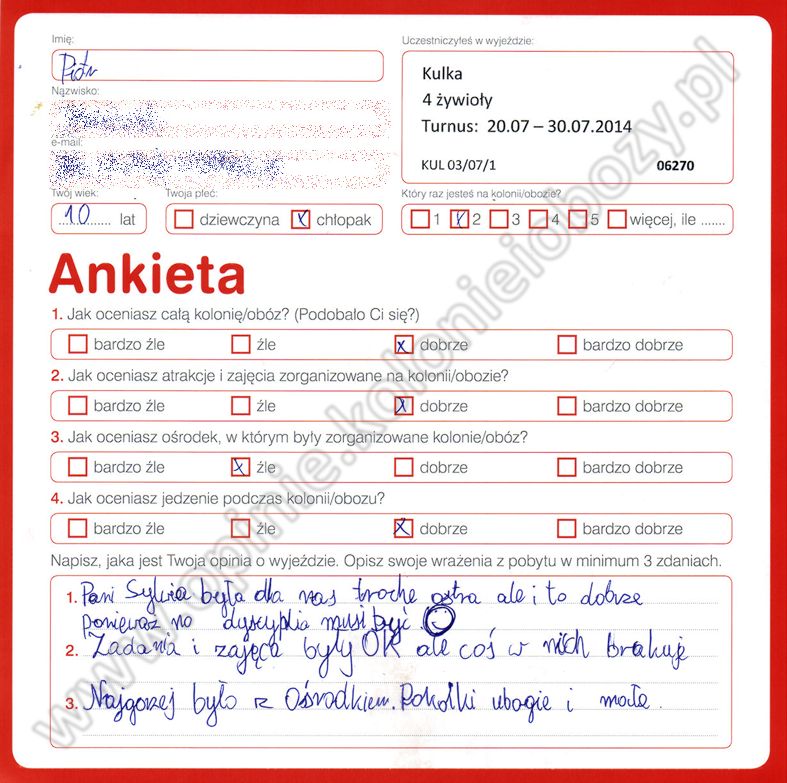 Imię:
Uczestniczyłeś w wyjeździe:
Piotr
Kulka
4 żywioły
Turnus: 20.07 – 30.07.2014
KUL 03/07/1 06270
Nazwisko:
e-mail:
Twój wiek: Twoja płeć: Który raz jesteś na kolonii/obozie?
10 lat dziewczyna x chłopak 1 x 2 3 4 5 więcej, ile .......
Ankieta
1. Jak oceniasz całą kolonię/obóz? (Podobało Ci się?)
bardzo źle źle x dobrze bardzo dobrze
2. Jak oceniasz atrakcje i zajęcia zorganizowane na kolonii/obozie?
bardzo źle źle x dobrze bardzo dobrze
3. Jak oceniasz ośrodek, w którym były zorganizowane kolonie/obóz?
bardzo źle x źle dobrze bardzo dobrze
4. Jak oceniasz jedzenie podczas kolonii/obozu?
bardzo źle źle x dobrze bardzo dobrze
Napisz, jaka jest Twoja opinia o wyjeździe. Opisz swoje wrażenia z pobytu w minimum 3 zdaniach.
1. Pani Sylwia była dla nas troche ostra ale i to dobrze
ponieważ no dyscyplia musi być
2. Zadania i zajęca były OK ale coś w nich brakuje
3. Najgorzej było z Ośrodkiem. Pokoiki ubogie i małe.
www.opinie.kolonieiobozy.pl